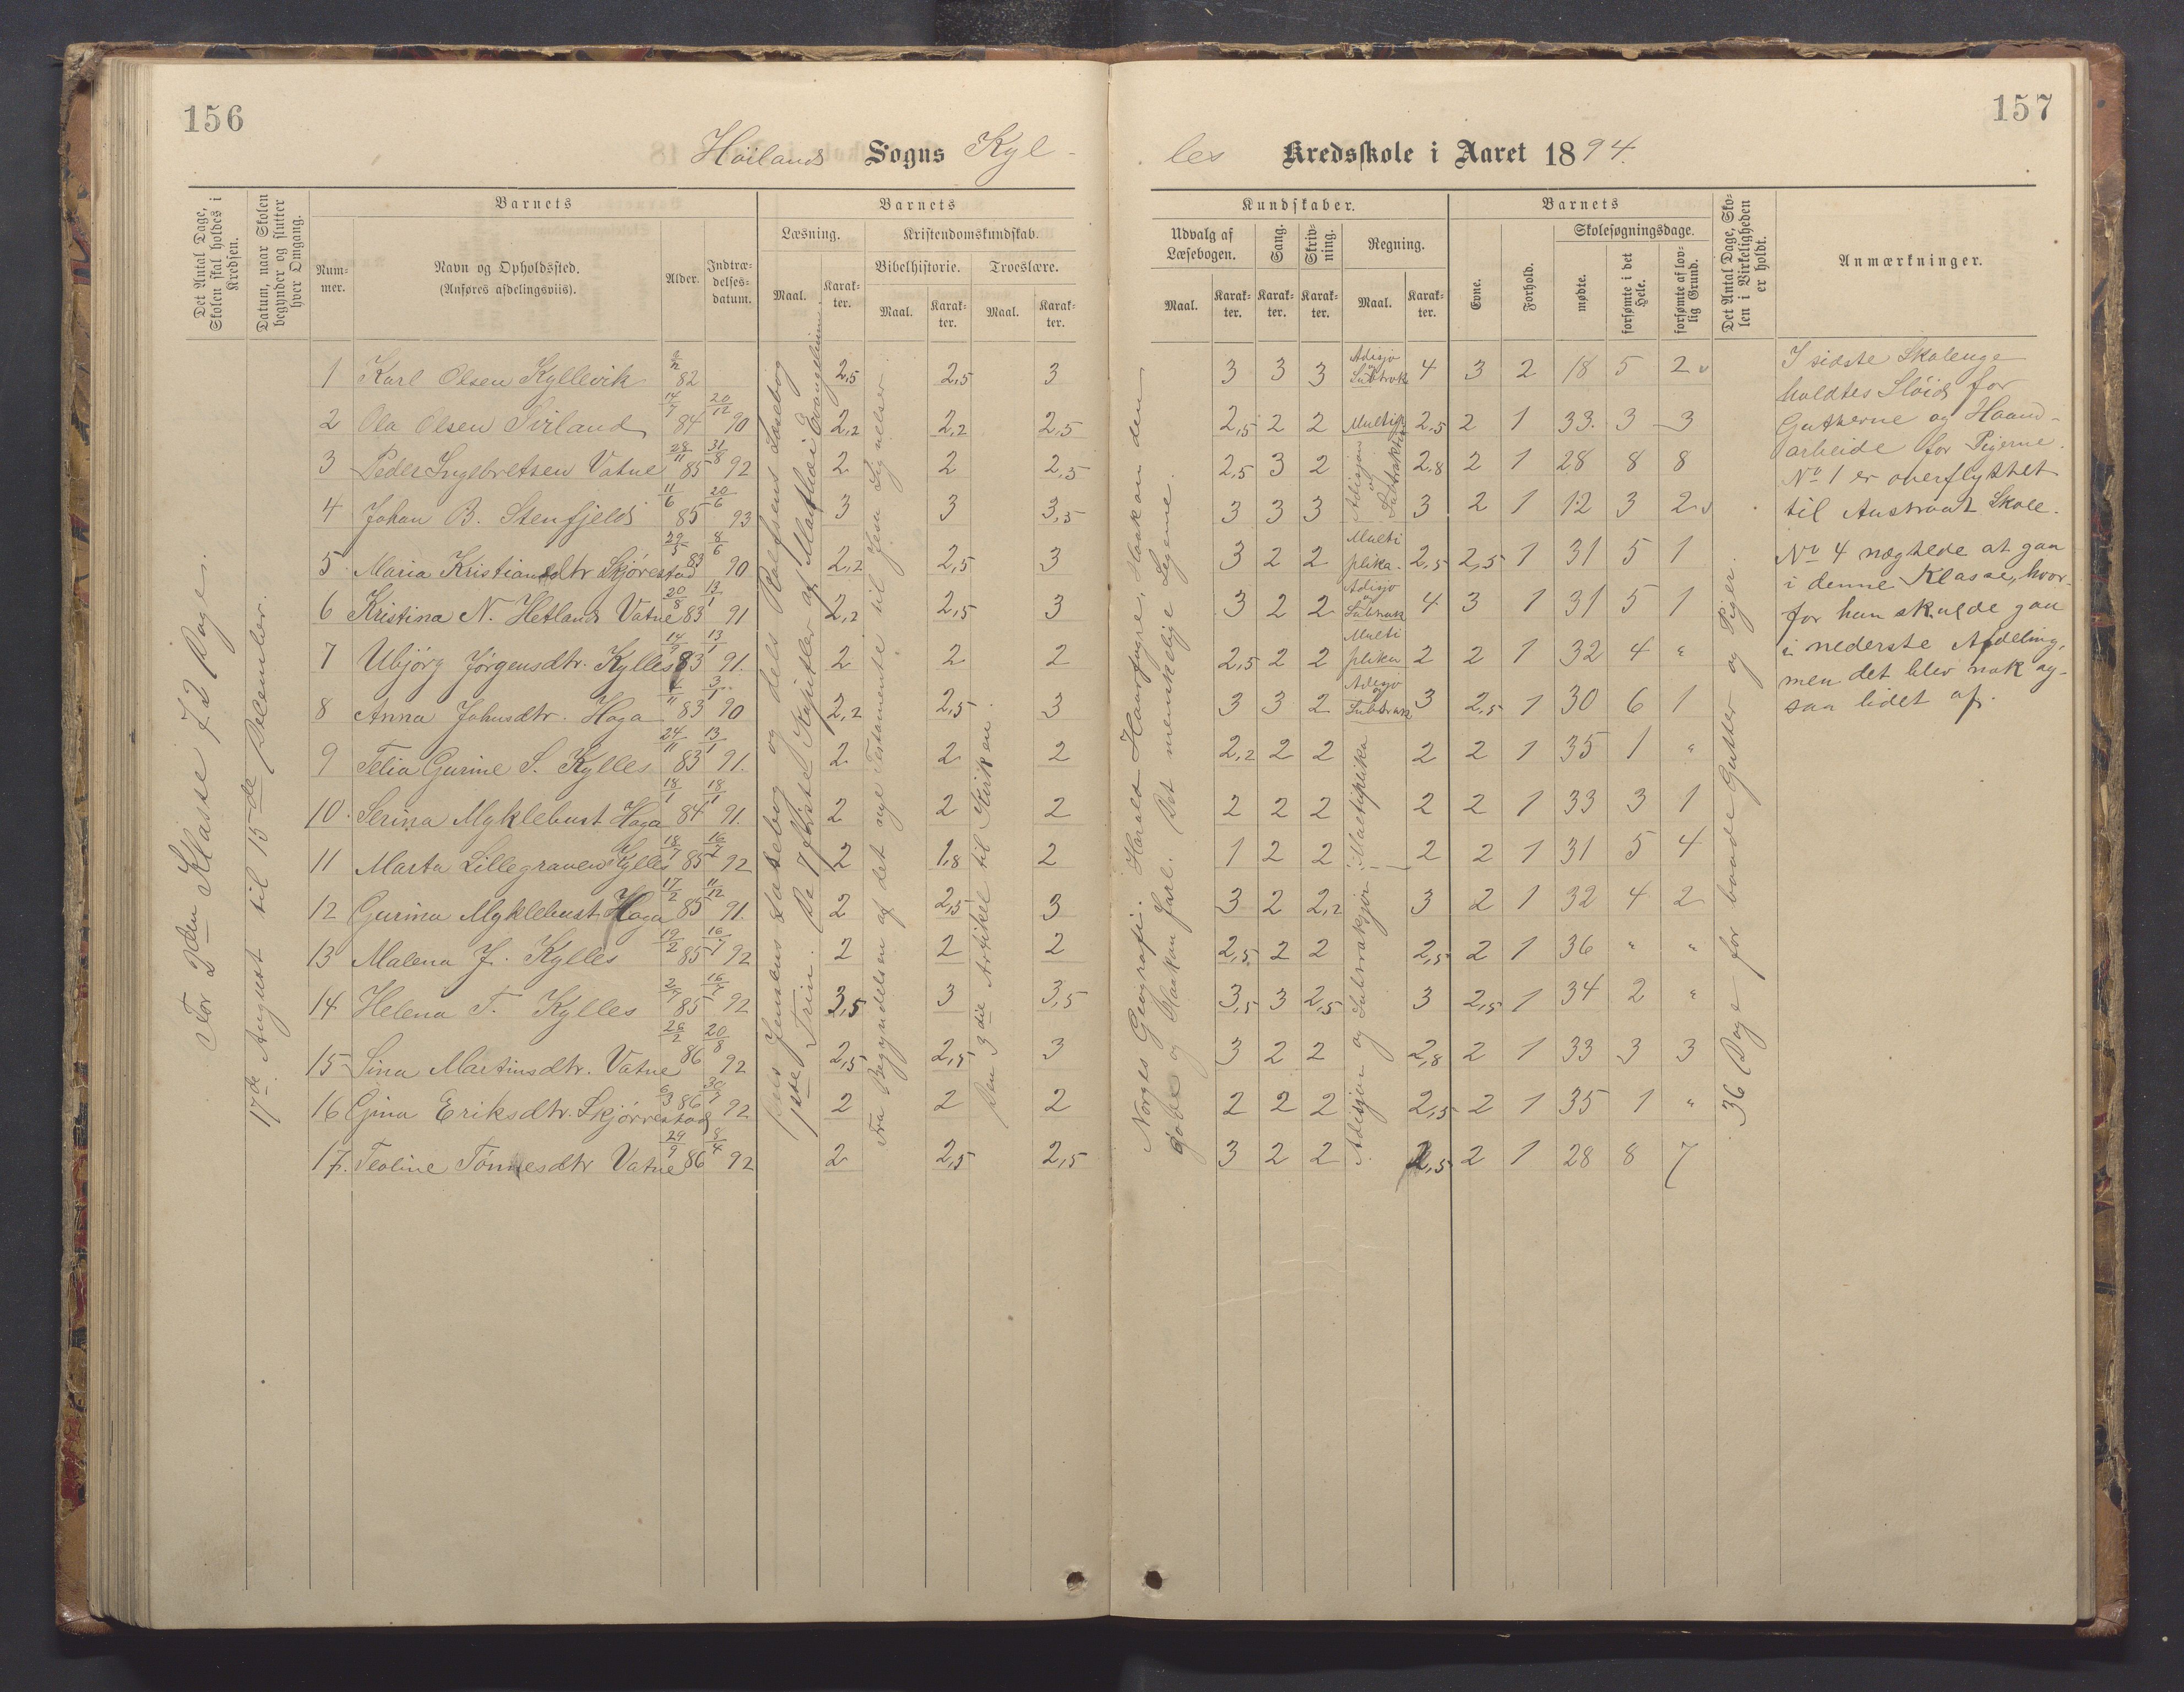 156
157
Höilands Sogns Kyl-
les Kredsskole i Aaret 1894.
Det Antal Dage, Skolen skal holdes i Kredsen.
Datum, naar Skolen begynder og slutter hver Omgang.
Barnets
Num-mer.
Navn og Opholdssted.
(Anføres afdelingsviis).
Alder.
Indtræ-delses-datum.
Barnets
Læsning.
Maal.
Karak-ter.
Kristendomskundskab.
Bibelhistorie.
Maal.
Karak-ter.
Troeslære.
Maal.
Karak-ter.
Kundskaber.
Udvalg af Læsebogen.
Maal.
Karak-ter.
Sang.
Karak-ter.
Skriv-ning.
Karak-ter.
Regning.
Maal.
Karak-ter.
Barnets
Evne.
Forhold.
Skolesøgningsdage.
mødte.
forsømte i det Hele.
forsømte af lov-lig Grund.
Det Antal Dage, Sko-len i Virkeligheden er holdt.
Anmærkninger.
For 2den Klasse 72 Dage.
17de August til 15de December.
dels Jensens Læsebog og dels Rolfsens Læsebog
1ste Trin. De 7 første Kapitler af Matthæi Evangelium
Fra Begyndelsen af det nye Testamente til Jesu Lignelser.
Den 3die Artikel til Kirken.
Norges Geografi. Harald Haarfagre, Haakon den
gode og Haakon Jarl. Det menneskelige Legeme.
36 Dage for baade Gutter og Piger.
1 Karl Olsen Kyllevik 82 2,5 2,5 3 3 3 3 Adisjo og Subtrak 4 3 2 18 5 2
2 Ola Olsen Tveland 14/7 84 20/12 90 2,2 2,2 2,5 2,5 2 2 Multipl 2,5 2 1 33 3 3
3 Peder Ingebretsen Vatne 28/11 85 31/8 92 2 2 2,5 2,5 3 2 Adisjon og Subtraktion 2,8 2 1 28 8 8
4 Johan B. Stenfjeld 11/6 85 20/6 93 3 3 3,5 3 3 3 3 2 1 12 3 2
5 Maria Kristiansdtr Skjörestad 83 8/6 90 2,2 2,5 3 3 2 2 Multiplika- 2,5 2,5 1 31 5 1
6 Kristina N. Hetland Vatne 20/8 83 13/1 91 2,2 2,5 3 3 2 2 Adisjo og Subtrak 4 3 1 31 5 1
7 Ubjörg Jörgensdtr. Kylles 14/9 83 13/1 91. 2 2 2 2,5 2 2 Multiplika 2 2 1 32 4 "
8 Anna Johnsdtr. Haga 83 3/1 90 2,2 2,5 3 3 3 2 Adisjo og Subtrak 3 2,5 1 30 6 1
9 Telia Gurine S. Kylles 24/11 83 13/1 91. 2 2 2 2,2 2 2 Multiplika 2 2 1 35 1 "
10. Serina Myklebust Haga 18/1 84 18/1 91. 2 2 2 2 2 2 2 2 1 33 3 1
11 Marta Lillegraven Kylles 18/7 85 16/7 92 2 1,8 2 1 2 2 2 2 1 31 5 4
12 Gurina Myklebust Haga 17/2 85 11/12 91. 2 2,5 3 3 2 2,2 Adisjon og Subtraksjon 3 2 1 32 4 2
13 Malena J. Kylles 19/2 85 16/7 92 2 2 2 2,5 2 2 2,5 2 1 36 " "
14 Helena T. Kylles 2/7 85 16/7 92 3,5 3 3,5 3,5 3 2,5 3 2,5 1 34 2 "
15 Sina Martinsdtr. Vatne 86 20/8 92 2,5 2,5 3 3 2 2 2,8 2 1 33 3 3
16 Gina Eriksdtr. Skjörrestad 6/3 86 30/7 92 2 2 2 2 2 2 2,5 2 1 35 1 "
17. Teoline Tönnesdtr Vatne 29/9 86 8/4 92 2 2,5 2,5 3 2 2 2,5 2 1 28 8 7
I sidste Skoleuge
holdtes Slöid for
Gutterne og Haand-
arbeide for Pigerne.
No 1 er overflyttet
til Austraat Skole.
No 4 nægtede at gaa
i denne Klasse, hvor-
for han skulde gaa
i nederste Afdeling,
men det blev nok og-
saa lidet af.